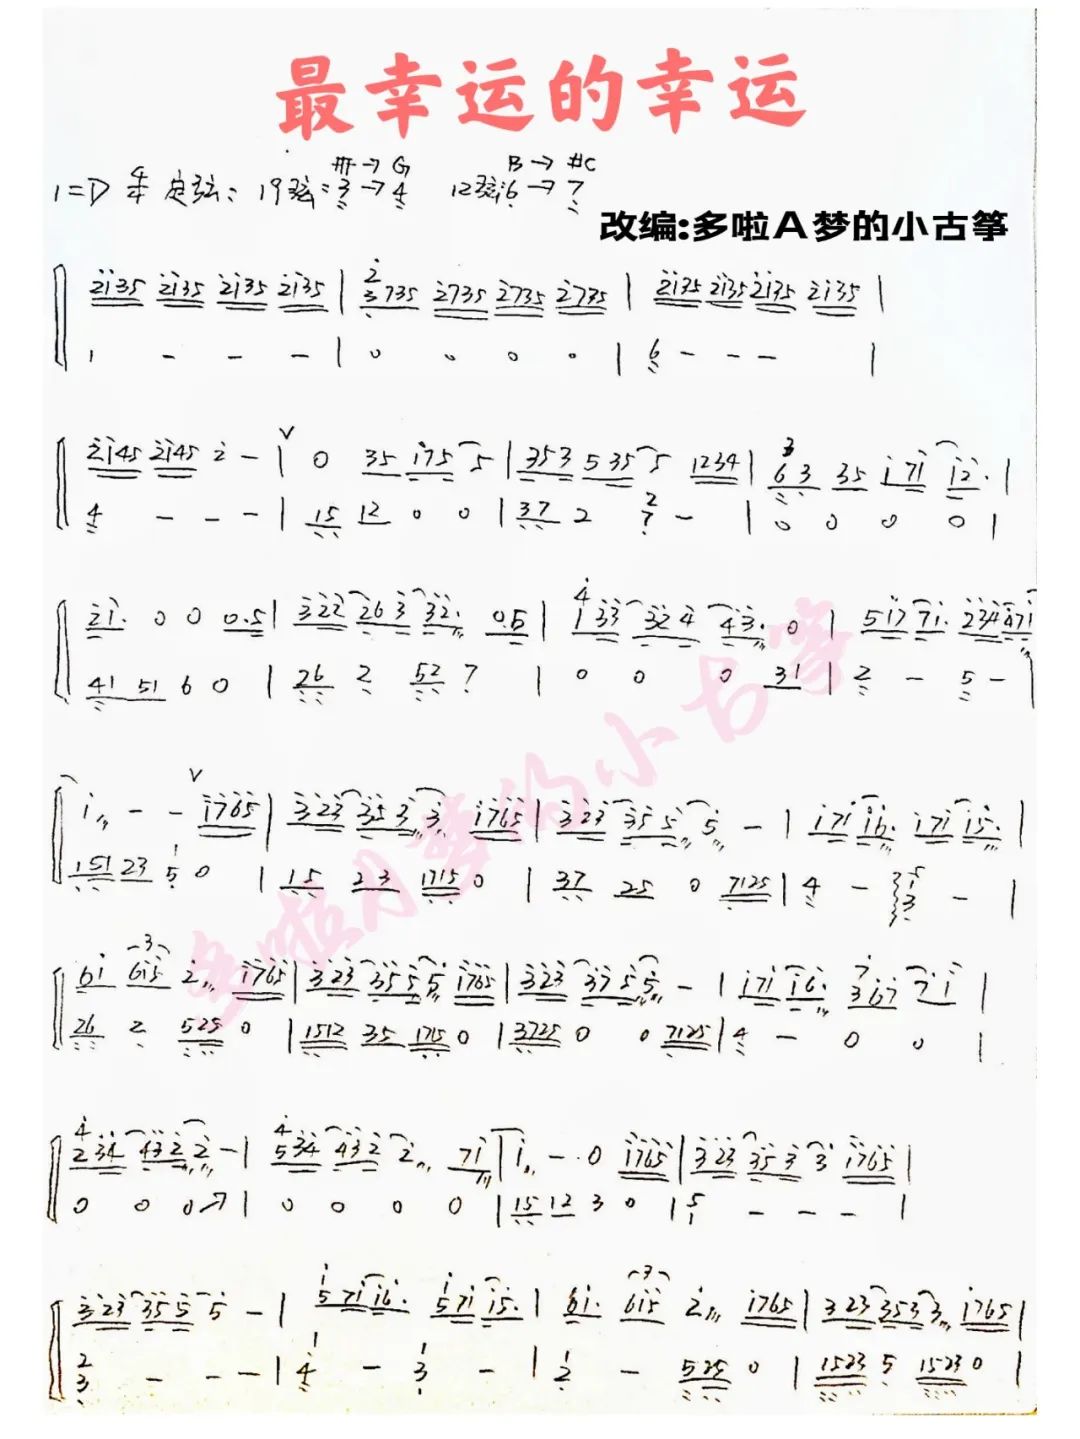 最幸运的幸运
#F→G B→#C
1=D 4/4 定弦: 19弦:3→4 12弦:6→7
改编:多啦A梦的小古筝
2135 2135 2135 2135 | 2 3735 2735 2735 2735 | 2135 2135 2135 2135 |
1 - - - | 0 0 0 0 | 6 - - - |
2145 2145 2 - | 0 35 175 5 | 353 535 5 1234 | 3 63 35 171 12. |
4 - - - | 15 12 0 0 | 37 2 2 7 - | 0 0 0 0 |
21. 0 0 0.5 | 322 263 32. 0.5 | 4 133 324 43. 0 | 517 71. 234 471
41 51 6 0 | 26 2 52 7 | 0 0 0 31 | 2 - 5 - |
1 - - 1765 | 323 353 3 1765 | 323 355 5 - | 171 16. 171 15. |
151 23 1 5 0 | 15 23 1715 0 | 37 25 0 7125 | 4 - 5 1 3 - |
61 3 615 2 1765 | 323 355 5 1765 | 323 375 5 - | 171 16. 7 367 7 1 |
26 2 525 0 | 1512 35 1715 0 | 3725 0 0 7125 | 4 - 0 0 |
4 234 432 2 - | 4 534 432 2 71 | 1 - 0 1765 | 323 353 3 1765 |
0 0 0 7 | 0 0 0 0 | 15 12 3 0 | 5 1 - - - |
323 355 5 - | 1 571 16. 1 571 15. | 61. 3 615 2 1765 | 323 353 3 1765 |
2 3 - - - | 1 4 - 1 3 - | 1 2 - 525 0 | 1523 5 1523 0 |
多啦A梦的小古筝